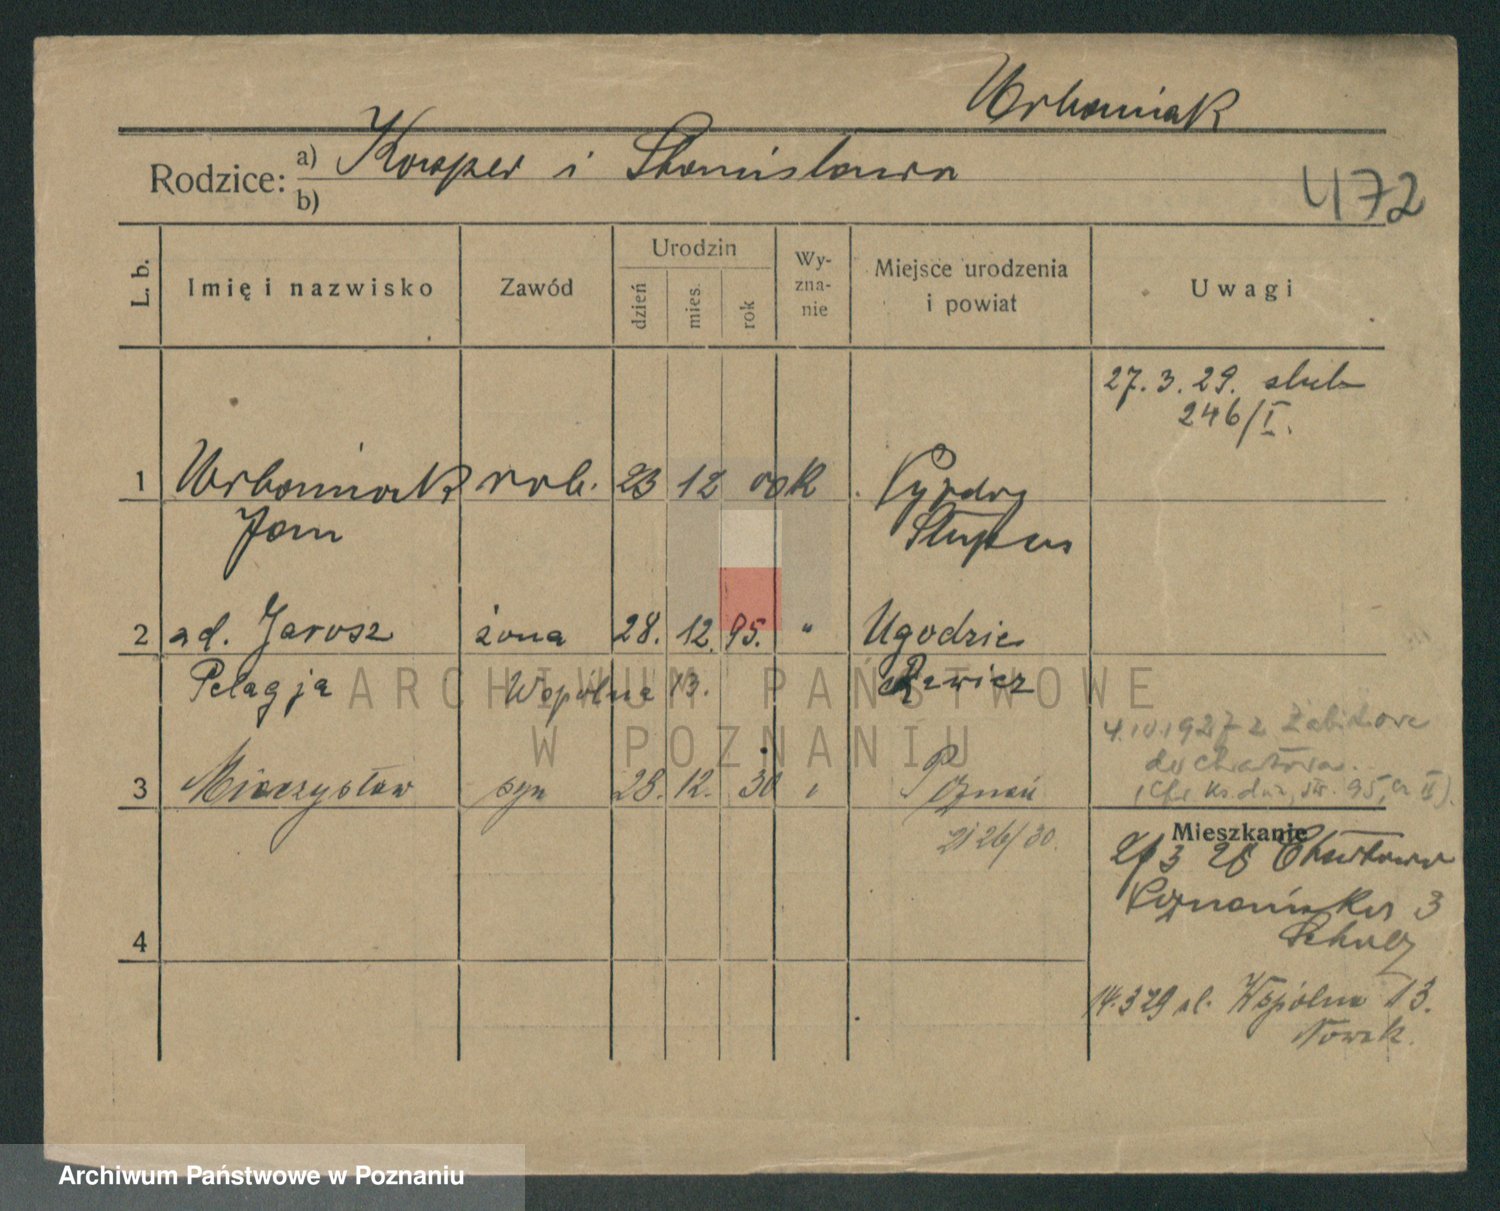 Urbaniak
Rodzice: a) Kasper i Stanisława
b)
472
L. b.
Imię i nazwisko
Zawód
Urodzin
dzień
mies.
rok
Wy-
zna-
nie
Miejsce urodzenia
i powiat
Uwagi
27.3.29. ślub
246/I.
1 Urbaniak rob. 23 12 00 k Pyzdry
Jan Słupca
2 zd. Jarosz żona 28. 12. 95. " Ugodzie
Pelagja Wspólna 13. Rawicz
ARCHIWUM PAŃSTWOWE
W POZNANIU
4.10.1927 z Żabikowa
do
3 Mieczysław syn 28. 12. 30 " Poznań
26/30.
Mieszkanie
3 28
Poznańska 3
Schulz
4
14.3 29 ul. Wspólna 13.
Nowak.
Archiwum Państwowe w Poznaniu